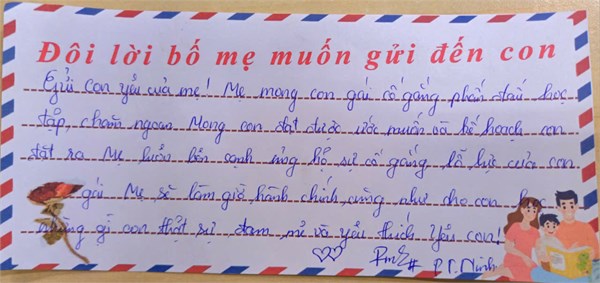 Đôi lời bố mẹ muốn gửi đến con
Gửi con yêu của mẹ! Mẹ mong con gái cố gắng phấn đấu học
tập, chăm ngoan. Mong con đạt được ước muốn và kế hoạch con
đặt ra. Mẹ luôn bên cạnh ủng hộ sự cố gắng, nỗ lực của con
gái. Mẹ sẽ làm giờ hành chính, cũng như cho con học
những gì con thật sự đam mê và yêu thích. Yêu con!
P.T.Ninh